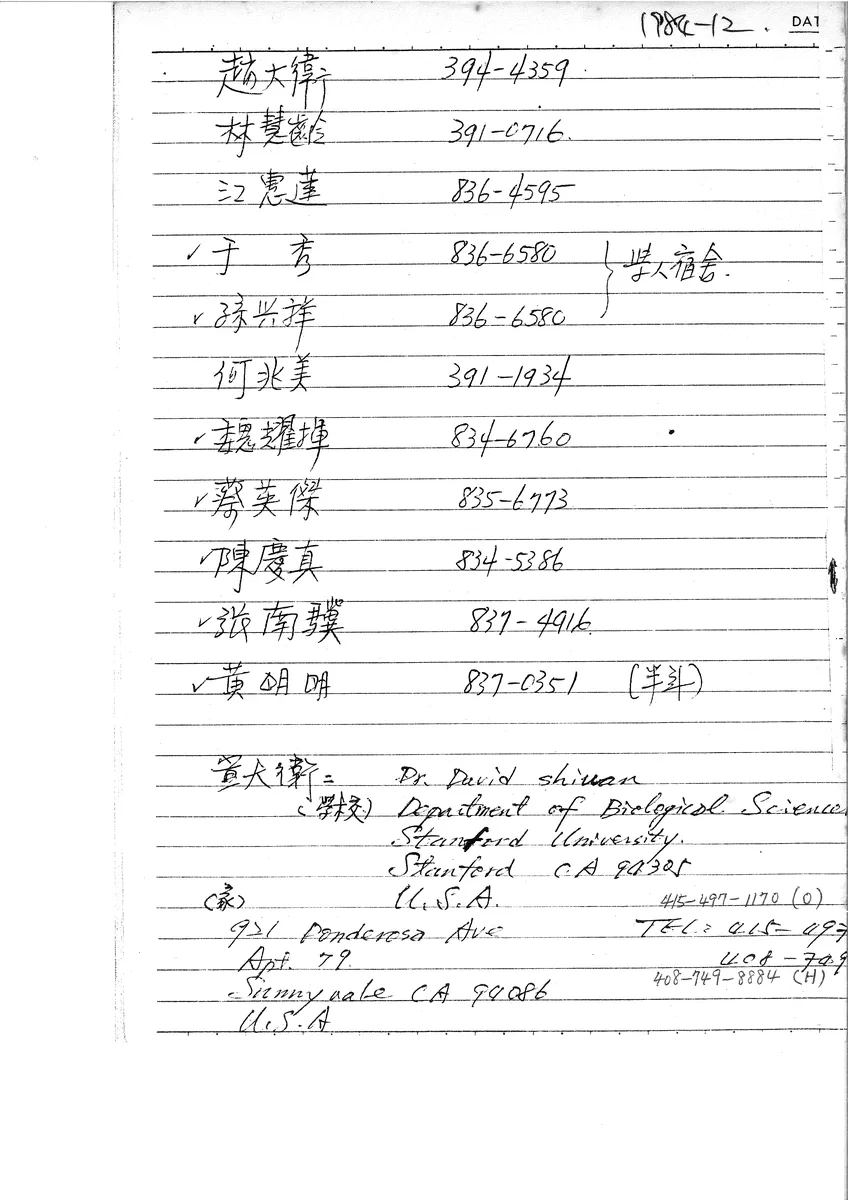 1984-12. DAT
趙大衛 394-4359
林慧齡 391-0716.
江惠蓮 836-4595
✓于 秀 836-6580 } 學人宿舍.
✓孫兴祥 836-6580
何兆美 391-1934
✓魏耀揮 834-6760
✓蔡英傑 835-6773
✓陳慶真 834-5386
✓張南驥 837-4916
✓黃明明 837-0351 (半斗)
大衛: Dr. David Shiuan
(學校) Department of Biological Science
Stanford University.
Stanford CA 94305
(家) U.S.A. 415-497-1170 (O)
921 Ponderosa Ave TEL: 415-497
Apt. 79 408-749
Sunnyvale CA 94086 408-749-8884 (H)
U.S.A